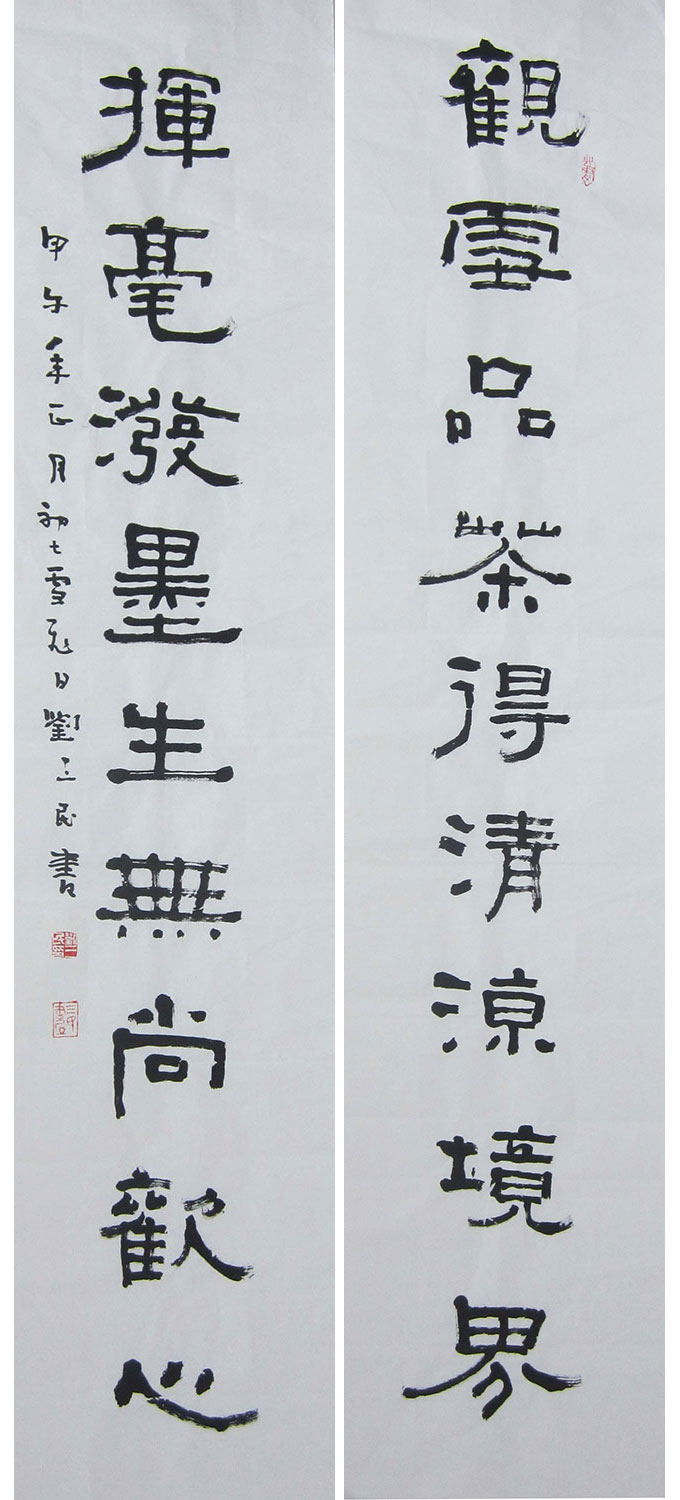 觀雪品茶得清涼境界
揮毫潑墨生無尚歡心
甲午年正月初七雪飛日劉三民書